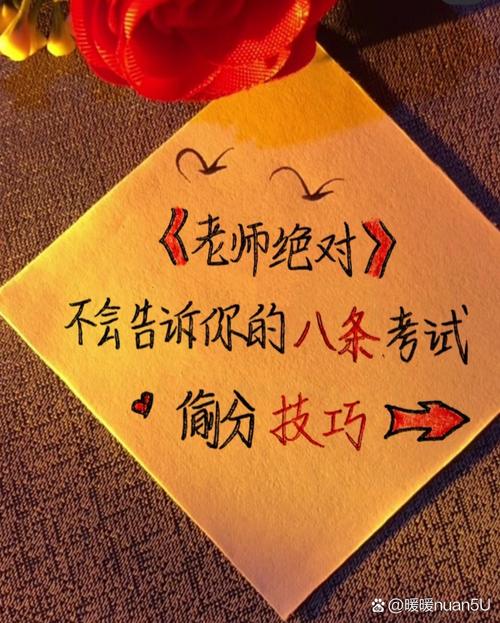 《老师绝对》
不会告诉你的八条考试
偷分技巧
@暖暖nuan5U